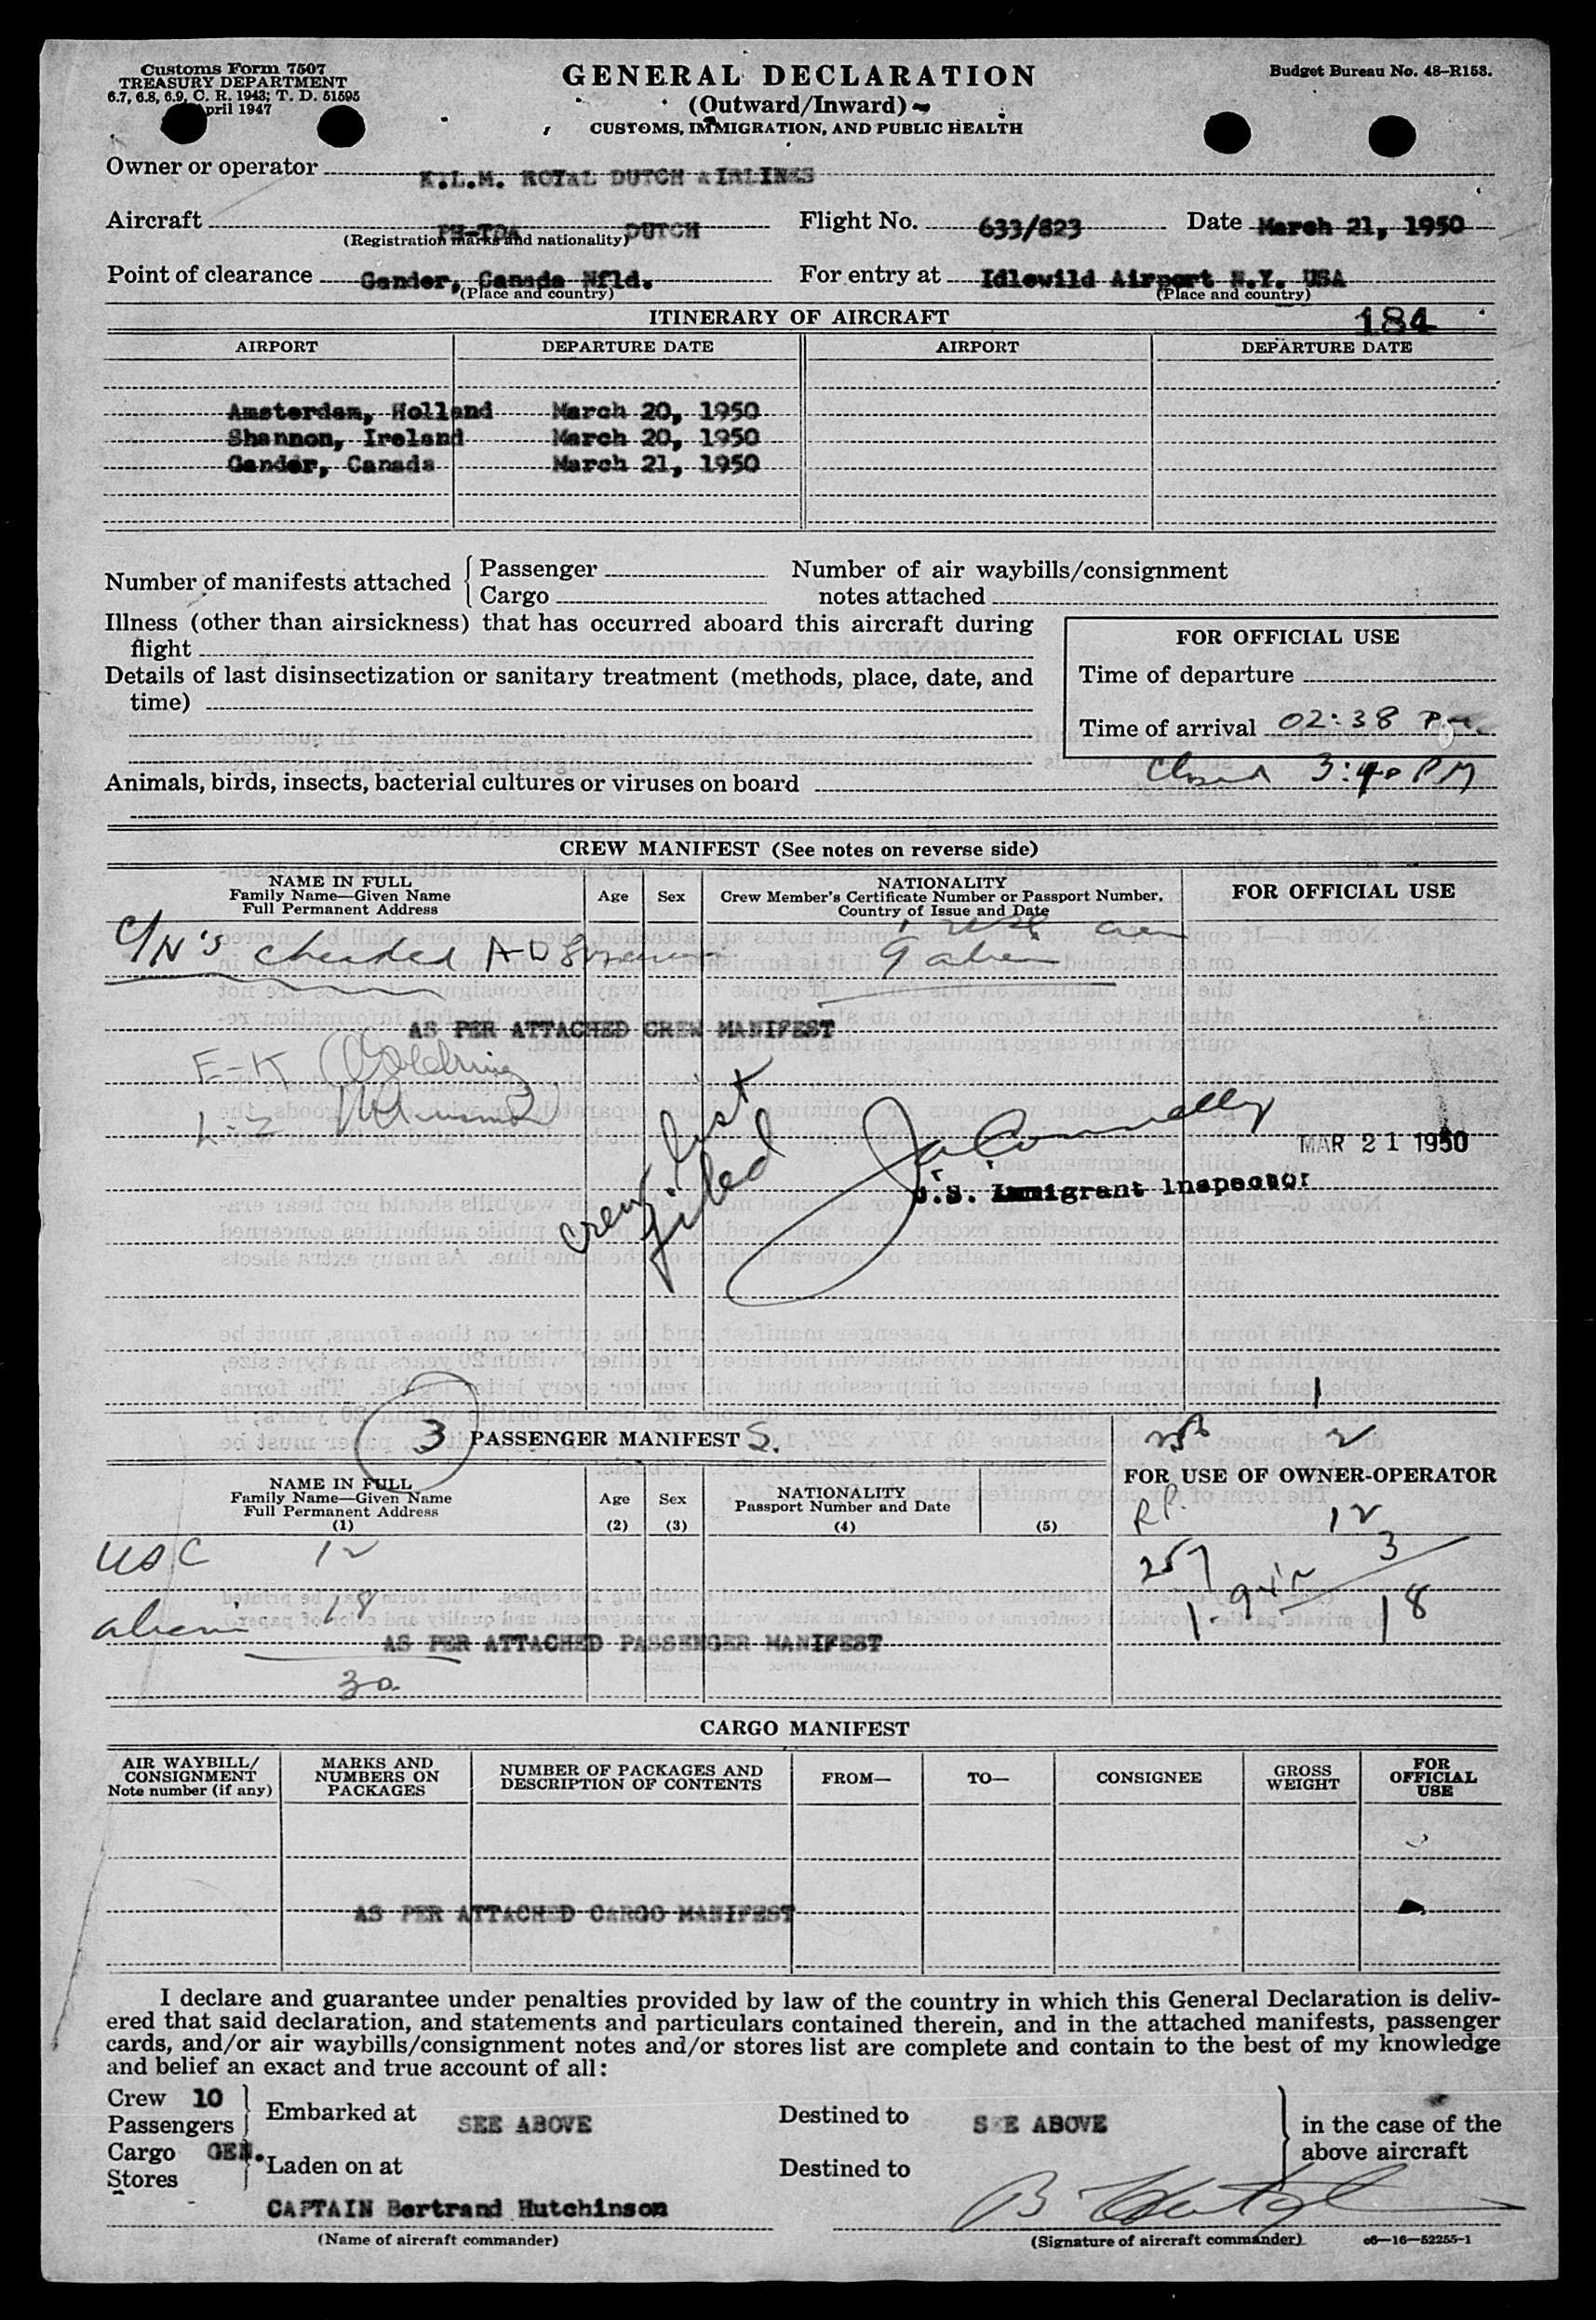 Customs Form 7507
TREASURY DEPARTMENT
6.7, 6.8, 6.9, C. R. 1943; T. D. 51595
April 1947
GENERAL DECLARATION
(Outward/Inward)
CUSTOMS, IMMIGRATION, AND PUBLIC HEALTH
Budget Bureau No. 48–R153.
Owner or operator K.L.M. ROYAL DUTCH AIRLINES
Aircraft PH-TDA DUTCH Flight No. 633/823 Date March 21, 1950
(Registration marks and nationality)
Point of clearance Gander, Canada Nfld. For entry at Idlewild Airport N.Y. USA
(Place and country) (Place and country)
ITINERARY OF AIRCRAFT 184
AIRPORT DEPARTURE DATE AIRPORT DEPARTURE DATE
Amsterdam, Holland March 20, 1950
Shannon, Ireland March 20, 1950
Gander, Canada March 21, 1950
Number of manifests attached { Passenger Number of air waybills/consignment
Cargo notes attached
Illness (other than airsickness) that has occurred aboard this aircraft during
flight
FOR OFFICIAL USE
Details of last disinsectization or sanitary treatment (methods, place, date, and
time)
Time of departure
Time of arrival 02:38 Pm
Closed 3:40 PM
Animals, birds, insects, bacterial cultures or viruses on board
CREW MANIFEST (See notes on reverse side)
NAME IN FULL
Family Name—Given Name
Full Permanent Address
Age Sex
NATIONALITY
Crew Member's Certificate Number or Passport Number,
Country of Issue and Date
FOR OFFICIAL USE
C/N's checked
9 alien
AS PER ATTACHED CREW MANIFEST
E-K Goldring
L-Z
Crew list
filed
Ja Connelly
MAR 21 1950
U.S. Immigrant Inspector
1
3 PASSENGER MANIFEST S.
2
FOR USE OF OWNER-OPERATOR
NAME IN FULL
Family Name—Given Name
Full Permanent Address
(1)
Age
(2)
Sex
(3)
NATIONALITY
Passport Number and Date
(4) (5)
R.P. 12
USC 12
257 3
alien 18
18
AS PER ATTACHED PASSENGER MANIFEST
30
CARGO MANIFEST
AIR WAYBILL/
CONSIGNMENT
Note number (if any)
MARKS AND
NUMBERS ON
PACKAGES
NUMBER OF PACKAGES AND
DESCRIPTION OF CONTENTS
FROM— TO— CONSIGNEE
GROSS
WEIGHT
FOR
OFFICIAL
USE
AS PER ATTACHED CARGO MANIFEST
I declare and guarantee under penalties provided by law of the country in which this General Declaration is deliv-
ered that said declaration, and statements and particulars contained therein, and in the attached manifests, passenger
cards, and/or air waybills/consignment notes and/or stores list are complete and contain to the best of my knowledge
and belief an exact and true account of all:
Crew 10
Passengers
Embarked at SEE ABOVE Destined to S E ABOVE
in the case of the
above aircraft
Cargo GEN.
Stores
Laden on at Destined to
CAPTAIN Bertrand Hutchinson
(Name of aircraft commander) (Signature of aircraft commander) c6—16—52255-1